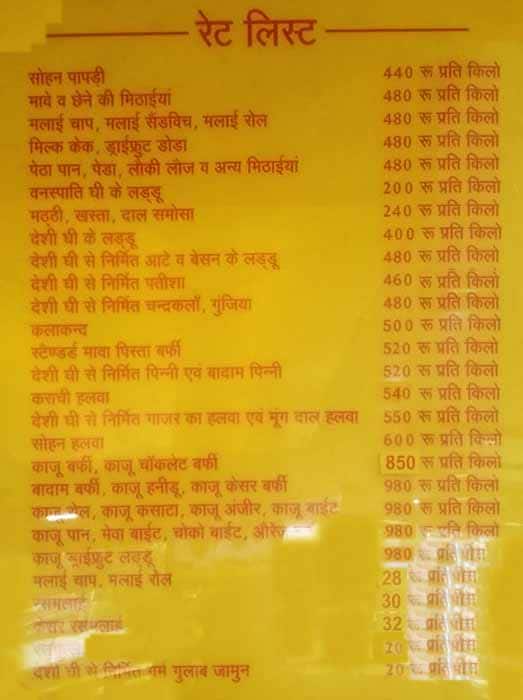 रेट लिस्ट
सोहन पापड़ी 440 रू प्रति किलो
मावे व छेने की मिठाईयां 480 रू प्रति किलो
मलाई चाप, मलाई सैंडविच, मलाई रोल 480 रू प्रति किलो
मिल्क केक, ड्राईफ्रुट डोडा 480 रू प्रति किलो
पेठा पान, पेडा, लौकी लौज व अन्य मिठाईयां 480 रू प्रति किलो
वनस्पाति घी के लड्डू 200 रू प्रति किलो
मठ्ठी, खस्ता, दाल समोसा 240 रू प्रति किलो
देशी घी के लड्डू 400 रू प्रति किलो
देशी घी से निर्मित आटे व बेसन के लड्डू 480 रू प्रति किलो
देशी घी से निर्मित पतीशा 460 रू प्रति किलो
देशी घी से निर्मित चन्द्रकलाँ, गुंजिया 480 रू प्रति किलो
कलाकन्द 500 रू प्रति किलो
स्टैण्डर्ड मावा पिस्ता बर्फी 520 रू प्रति किलो
देशी घी से निर्मित पिन्नी एवं बादाम पिन्नी 520 रू प्रति किलो
कराची हलवा 540 रू प्रति किलो
देशी घी से निर्मित गाजर का हलवा एवं मूंग दाल हलवा 550 रू प्रति किलो
सोहन हलवा 600 रू प्रति किलो
काजू बर्फी, काजू चॉकलेट बर्फी 850 रू प्रति किलो
बादाम बर्फी, काजू हनीडू, काजू केसर बर्फी 980 रू प्रति किलो
काजू रोल, काजू कसाटा, काजू अंजीर, काजू बाईट 980 रू प्रति किलो
काजू पान, मेवा बाईट, चोको बाईट, 980 रू प्रति किलो
काजू ड्राईफ्रुट लड्डू 980 रू प्रति पीस
मलाई चाप, मलाई रोल 28 रू प्रति पीस
रसमलाई 30 रू प्रति पीस
केसर रसमलाई 32 रू प्रति पीस
20 रू प्रति पीस
देशी घी से निर्मित गर्म गुलाब जामुन 20 रू प्रति पीस